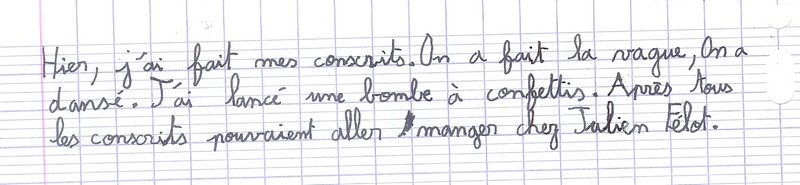 Hier, j'ai fait mes conscrits. On a fait la vague, On a
dansé. J'ai lancé une bombe à confettis. Après tous
les conscrits pouvaient aller manger chez Julien Félot.